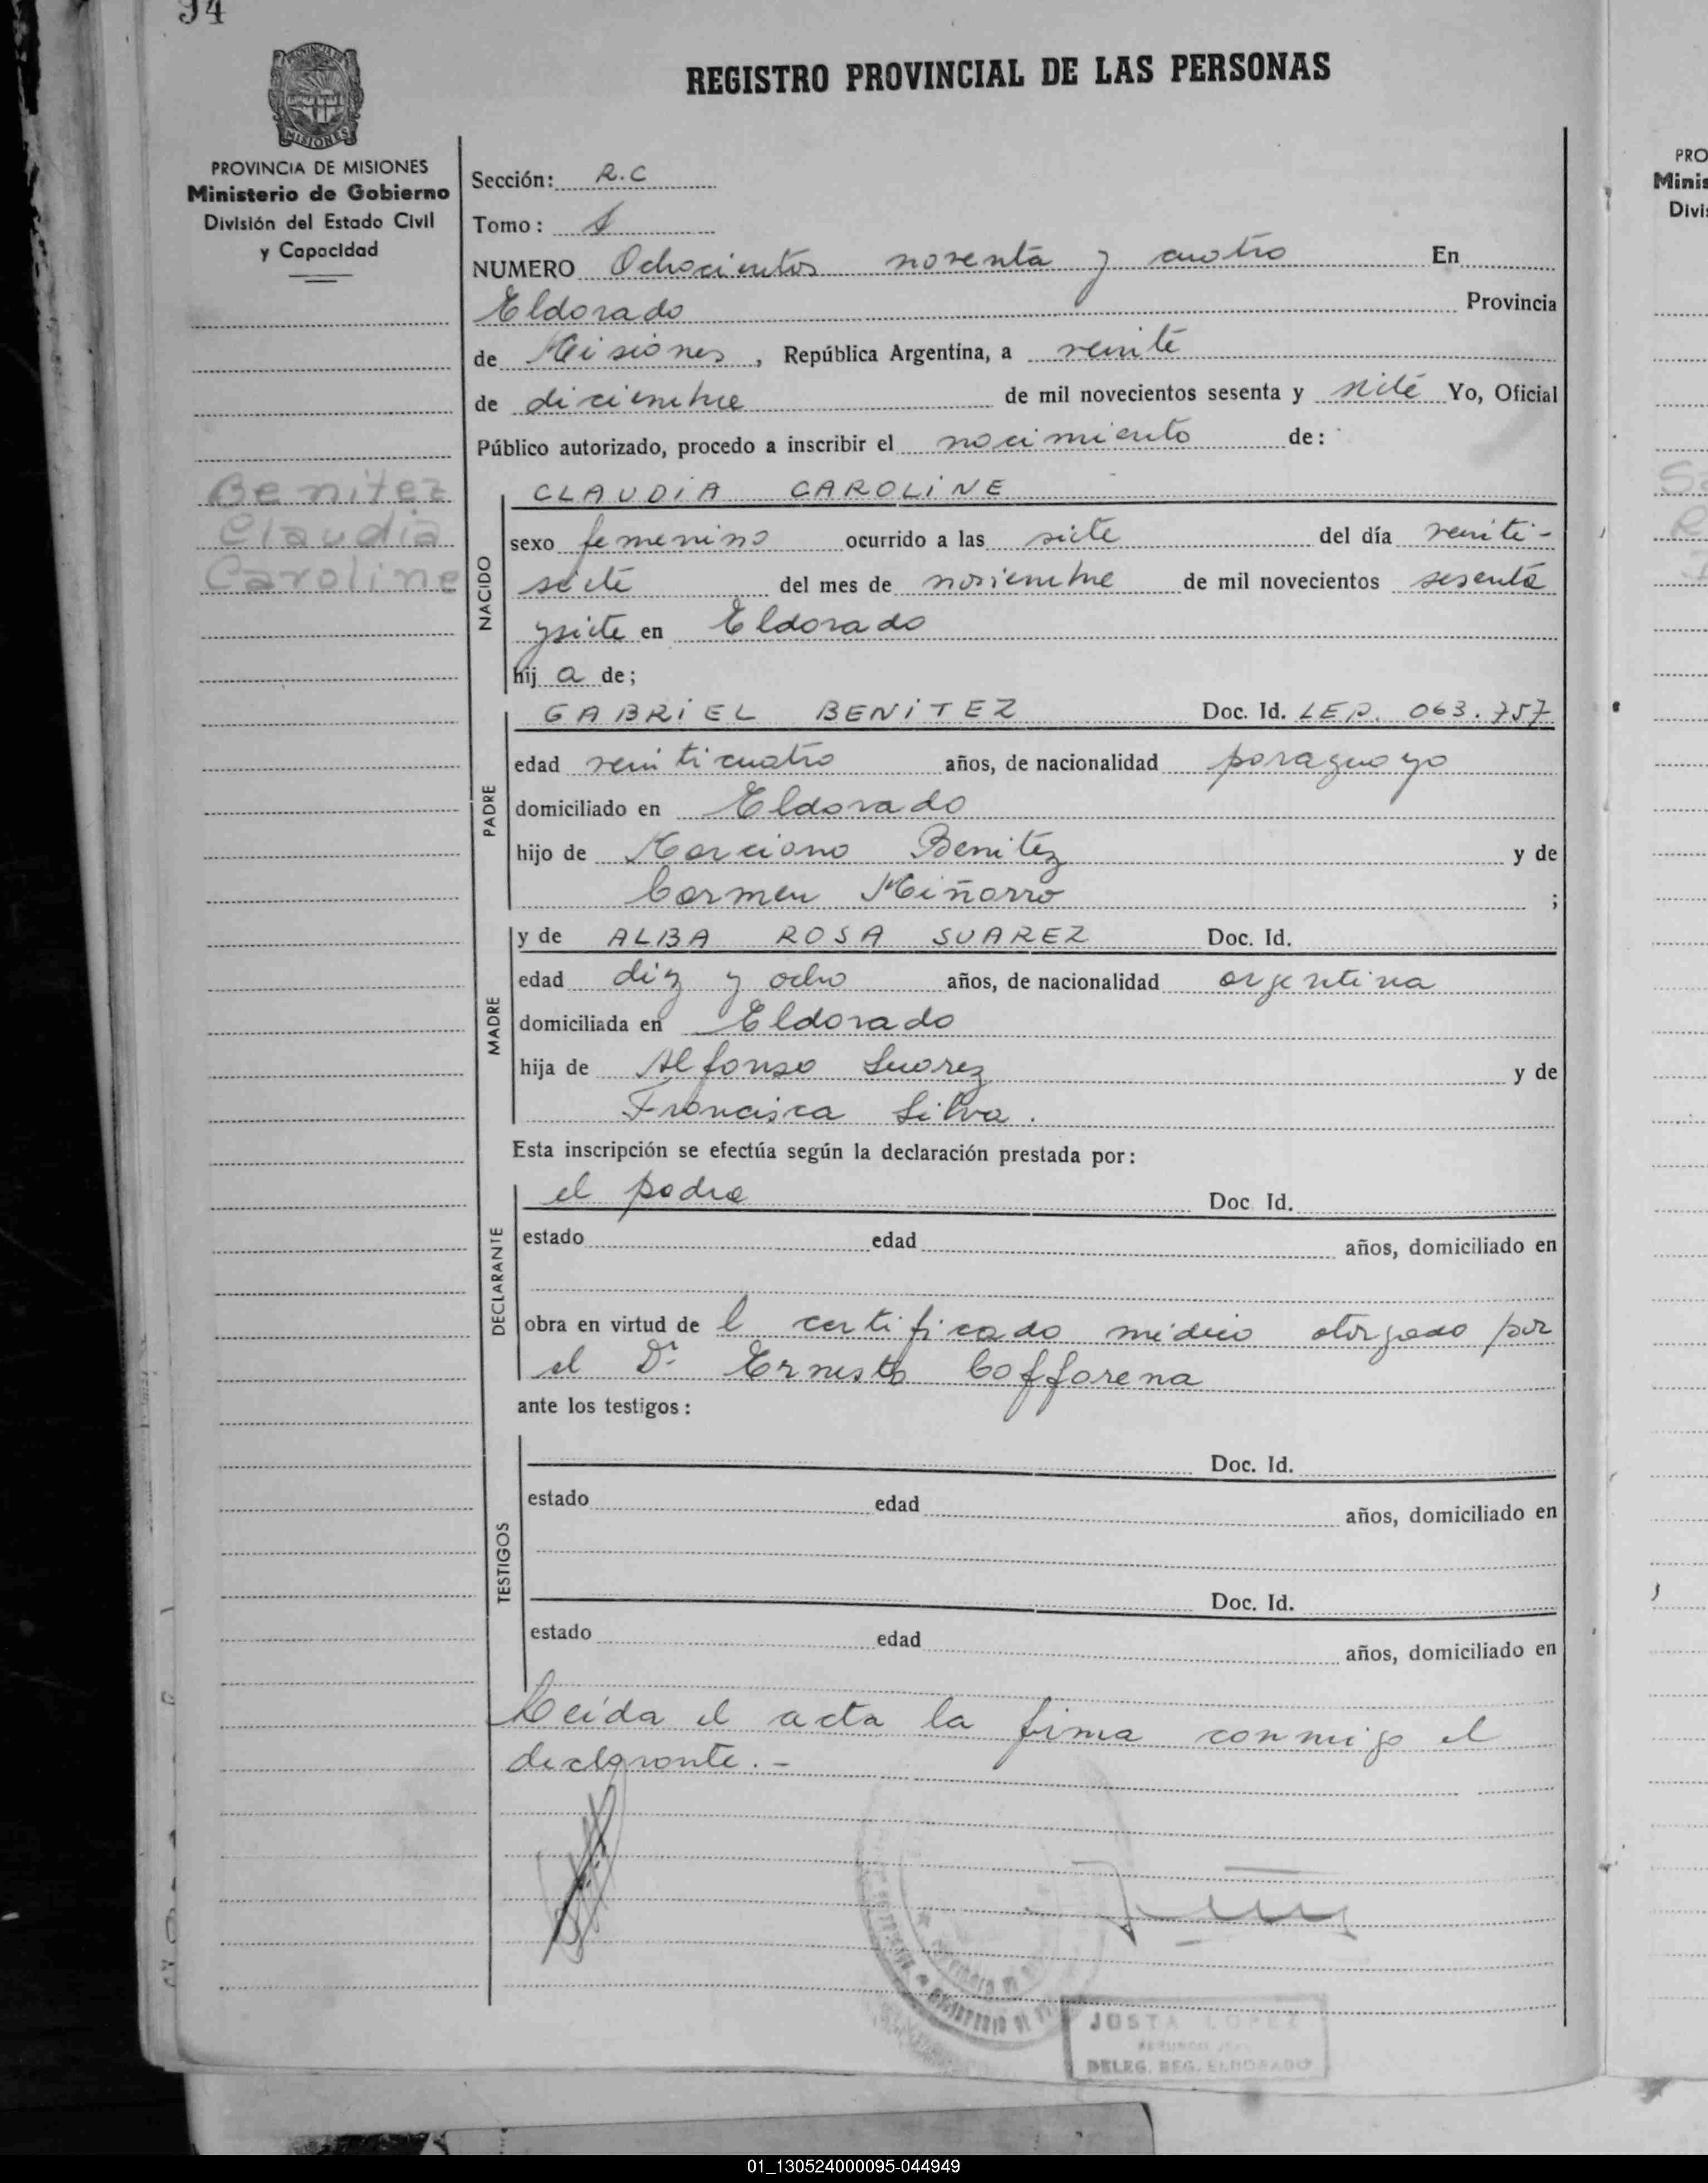 94
REGISTRO PROVINCIAL DE LAS PERSONAS
PROVINCIA DE MISIONES
Ministerio de Gobierno
División del Estado Civil
y Capacidad
Benitez
Claudia
Caroline
Sección: R.C
Tomo: 1
NUMERO Ochocientos noventa y cuatro En
Eldorado Provincia
de Misiones, República Argentina, a veinte
de diciembre de mil novecientos sesenta y siete Yo, Oficial
Público autorizado, procedo a inscribir el nacimiento de:
NACIDO
CLAUDIA CAROLINE
sexo femenino ocurrido a las siete del día veinti-
siete del mes de noviembre de mil novecientos sesenta
y siete en Eldorado
hij a de;
PADRE
GABRIEL BENITEZ Doc. Id. LEP. 063.757
edad veinticuatro años, de nacionalidad paraguayo
domiciliado en Eldorado
hijo de Marciano Benitez y de
Carmen Miñarro ;
MADRE
y de ALBA ROSA SUAREZ Doc. Id.
edad diez y ocho años, de nacionalidad argentina
domiciliada en Eldorado
hija de Alfonso Suarez y de
Francisca Silva.
Esta inscripción se efectúa según la declaración prestada por:
DECLARANTE
el padre Doc Id.
estado edad años, domiciliado en
obra en virtud de l certificado médico otorgado por
el Dr. Ernesto Cafforena
ante los testigos:
TESTIGOS
Doc. Id.
estado edad años, domiciliado en
Doc. Id.
estado edad años, domiciliado en
Leída el acta la firma conmigo el
declarante.-
JUSTA LOPEZ
DELEG. REG. ELDORADO
PRO
Minis
Divi
01_130524000095-044949